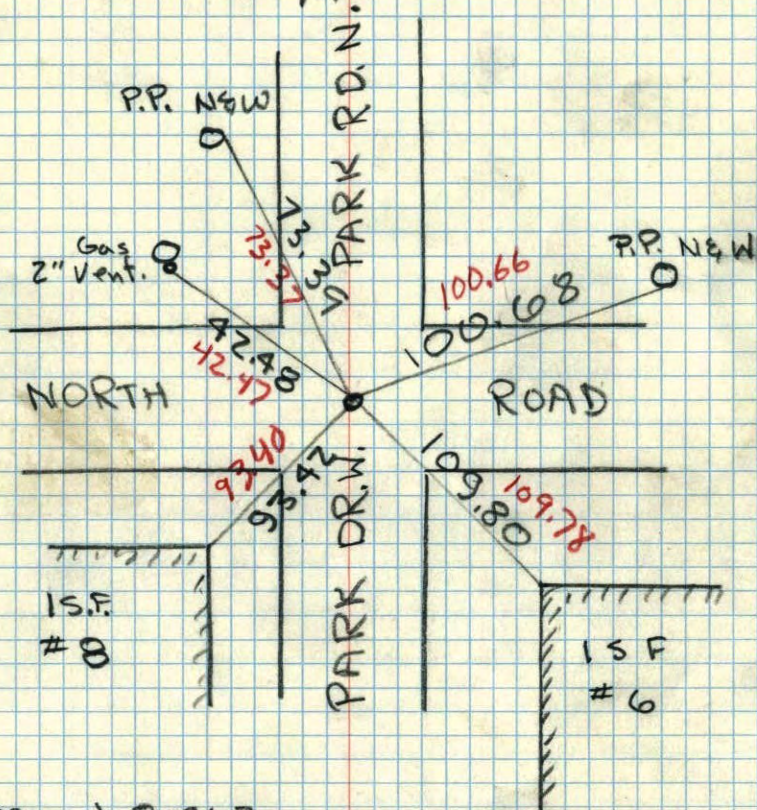 PARK RD. N.
P.P. N&W
73.39
73.37
Gas
2" Vent.
P.P. N&W
100.66
100.68
42.48
42.47
NORTH ROAD
93.40
93.42
109.80
109.78
PARK DR. W.
1 S.F.
# 8
1 S F
# 6